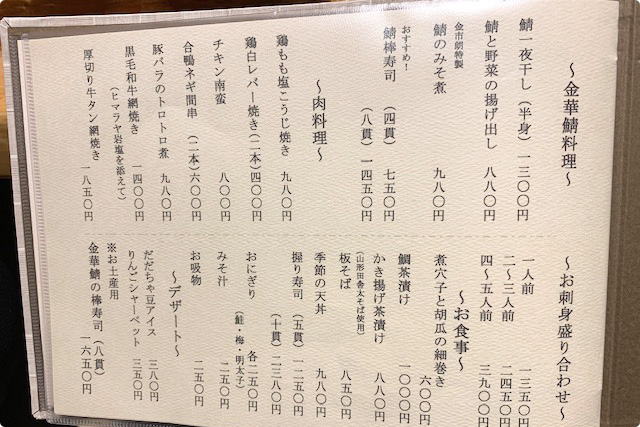 ～金華鯖料理～
鯖一夜干し（半身）一三〇〇円
鯖と野菜の揚げ出し 八八〇円
金市朗特製
鯖のみそ煮 九八〇円
おすすめ！
鯖棒寿司（四貫）七五〇円
（八貫）一四五〇円
～肉料理～
鶏もも塩こうじ焼き 九八〇円
鶏白レバー焼き（二本）四〇〇円
合鴨ネギ間串（二本）六〇〇円
チキン南蛮 八〇〇円
豚バラのトロトロ煮 九八〇円
黒毛和牛網焼き 一四〇〇円
（ヒマラヤ岩塩を添えて）
厚切り牛タン網焼き 一八五〇円
～お刺身盛り合わせ～
一人前 一三五〇円
二～三人前 二四五〇円
四～五人前 三九〇〇円
～お食事～
煮穴子と胡瓜の細巻き
六〇〇円
鯛茶漬け 一〇〇〇円
かき揚げ茶漬け 八八〇円
（山形田舎太そば使用）
板そば 八五〇円
季節の天丼 九八〇円
握り寿司（五貫）一二五〇円
（十貫）二三八〇円
おにぎり 各二五〇円
（鮭・梅・明太子）
みそ汁 二五〇円
お吸物 二五〇円
～デザート～
だだちゃ豆アイス 三八〇円
りんごシャーベット 三五〇円
※お土産用
金華鯖の棒寿司（八貫）
一六五〇円